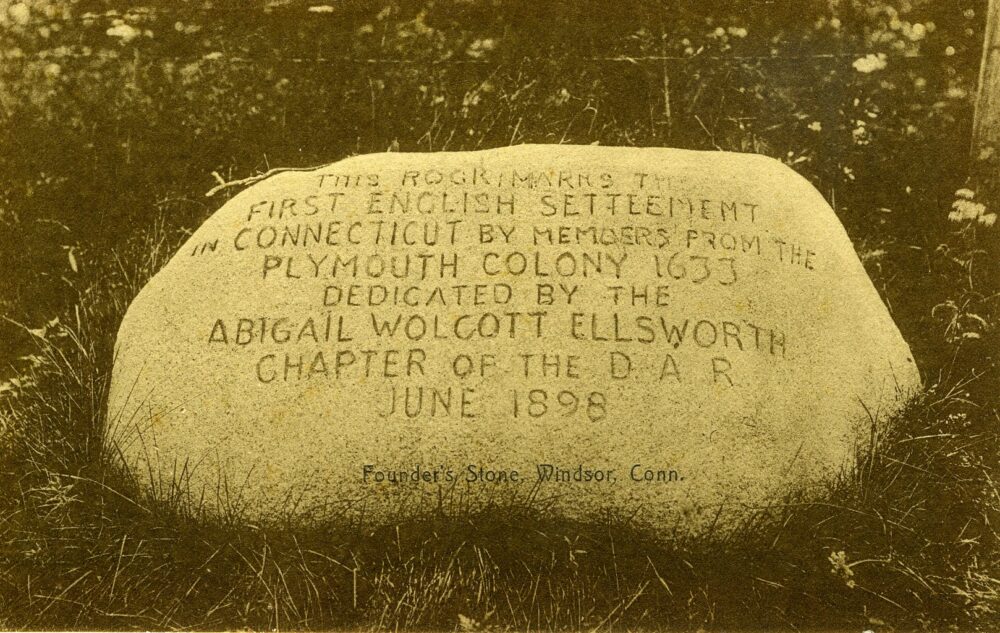 THIS ROCK MARKS THE
FIRST ENGLISH SETTLEMENT
IN CONNECTICUT BY MEMBERS FROM THE
PLYMOUTH COLONY 1633
DEDICATED BY THE
ABIGAIL WOLCOTT ELLSWORTH
CHAPTER OF THE D A R
JUNE 1898
Founder's Stone, Windsor, Conn.